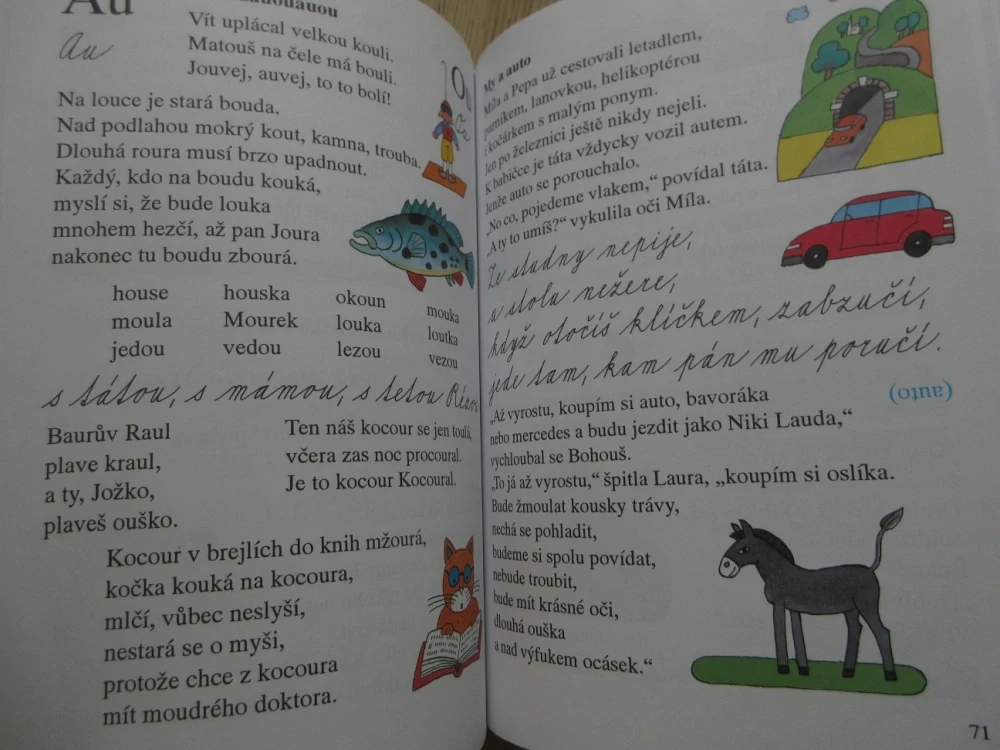 Au
Au
Vít uplácal velkou kouli.
Matouš na čele má bouli.
Jouvej, auvej, to to bolí!
Na louce je stará bouda.
Nad podlahou mokrý kout, kamna, trouba.
Dlouhá roura musí brzo upadnout.
Každý, kdo na boudu kouká,
myslí si, že bude louka
mnohem hezčí, až pan Joura
nakonec tu boudu zbourá.
house houska okoun mouka
moula Mourek louka loutka
jedou vedou lezou vezou
s tátou, s mámou, s tetou
Baurův Raul
plave kraul,
a ty, Jožko,
plaveš ouško.
Ten náš kocour se jen toulá,
včera zas noc procoural.
Je to kocour Kocoural.
Kocour v brejlích do knih mžourá,
kočka kouká na kocoura,
mlčí, vůbec neslyší,
nestará se o myši,
protože chce z kocoura
mít moudrého doktora.
My a auto
Míla a Pepa už cestovali letadlem,
parníkem, lanovkou, helikoptérou
i kočárkem s malým ponym.
Jen po železnici ještě nikdy nejeli.
K babičce je táta vždycky vozil autem.
Jenže auto se porouchalo.
„No co, pojedeme vlakem,“ povídal táta.
„A ty to umíš?“ vykulila oči Míla.
Ze studny nepije,
u stolu nežere,
když otočíš klíčkem, zabzučí,
jede tam, kam pán mu poručí.
(auto)
„Až vyrostu, koupím si auto, bavoráka
nebo mercedes a budu jezdit jako Niki Lauda,“
vychloubal se Bohouš.
„To já až vyrostu,“ špitla Laura, „koupím si oslíka.
Bude žmoulat kousky trávy,
nechá se pohladit,
budeme si spolu povídat,
nebude troubit,
bude mít krásné oči,
dlouhá ouška
a nad výfukem ocásek.“
71